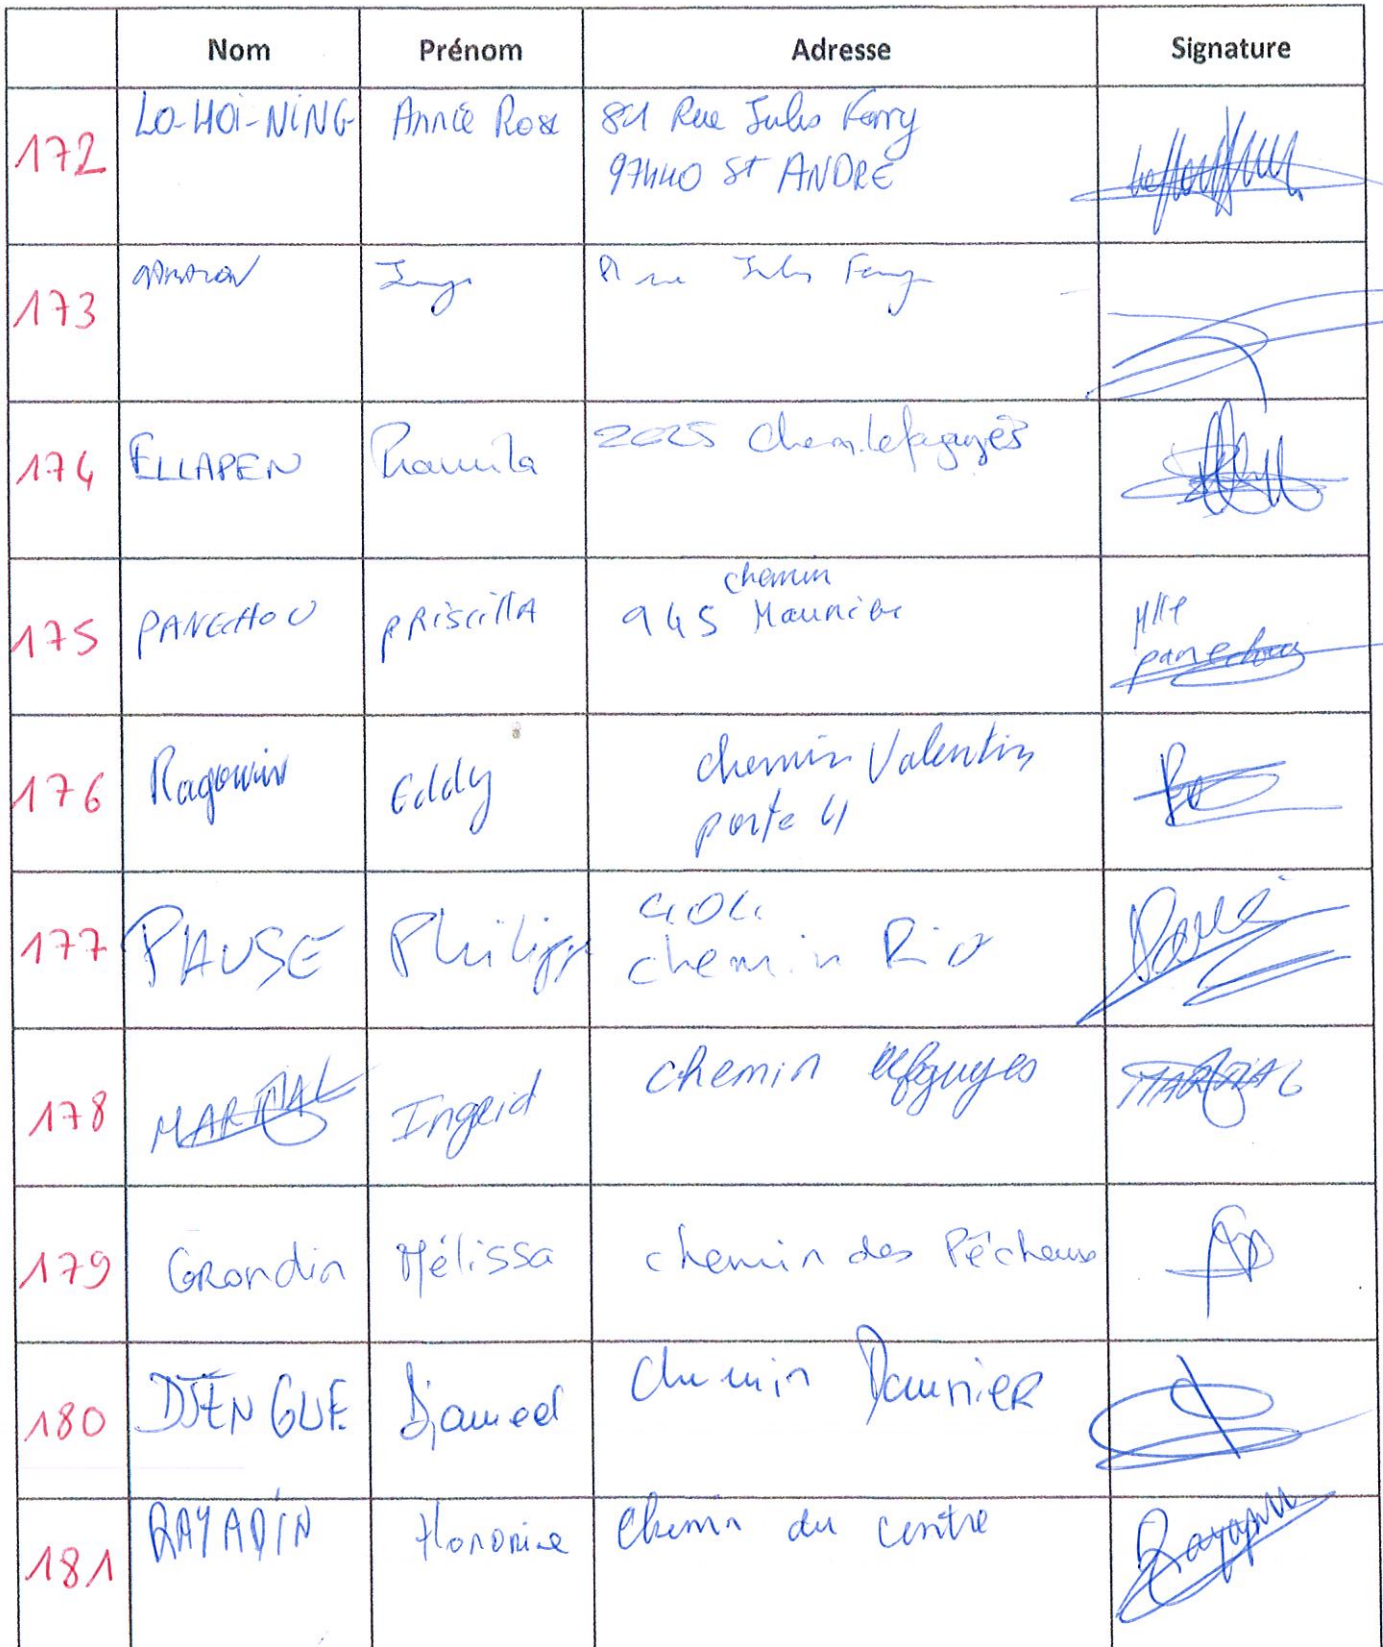 Nom Prénom Adresse Signature
172 LO-HOI-NING Annie Rose 81 Rue Jules Ferry
97440 St ANDRE
173 rue Jules Ferry
174 ELLAPEN 2025 Chem. Lefaguyès
175 PANECHOU PRiscillA 945 chemin Maunier
Mlle
panechou
176 Ragowin Eddy chemin Valentin
porte 4
177 PAUSE Philippe
chemin Rio
178 MARTIAL Ingrid chemin lefaguyes MARTIAL
179 Grondin Mélissa chemin des Pécheurs
180 DJENGUE Djameel Chemin
181 Honorine Chemin du centre